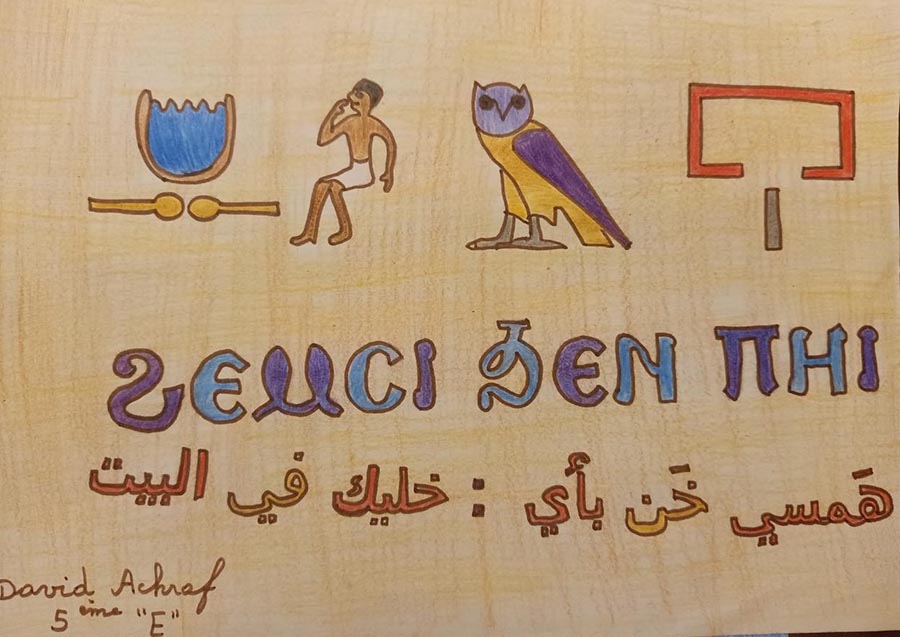 𓅓 𓉐𓏤
ϩⲉⲙⲥⲓ ϧⲉⲛ ⲡⲏⲓ
هَمسي خَن بأي : خليك في البيت
David Achraf
5 eme "E"